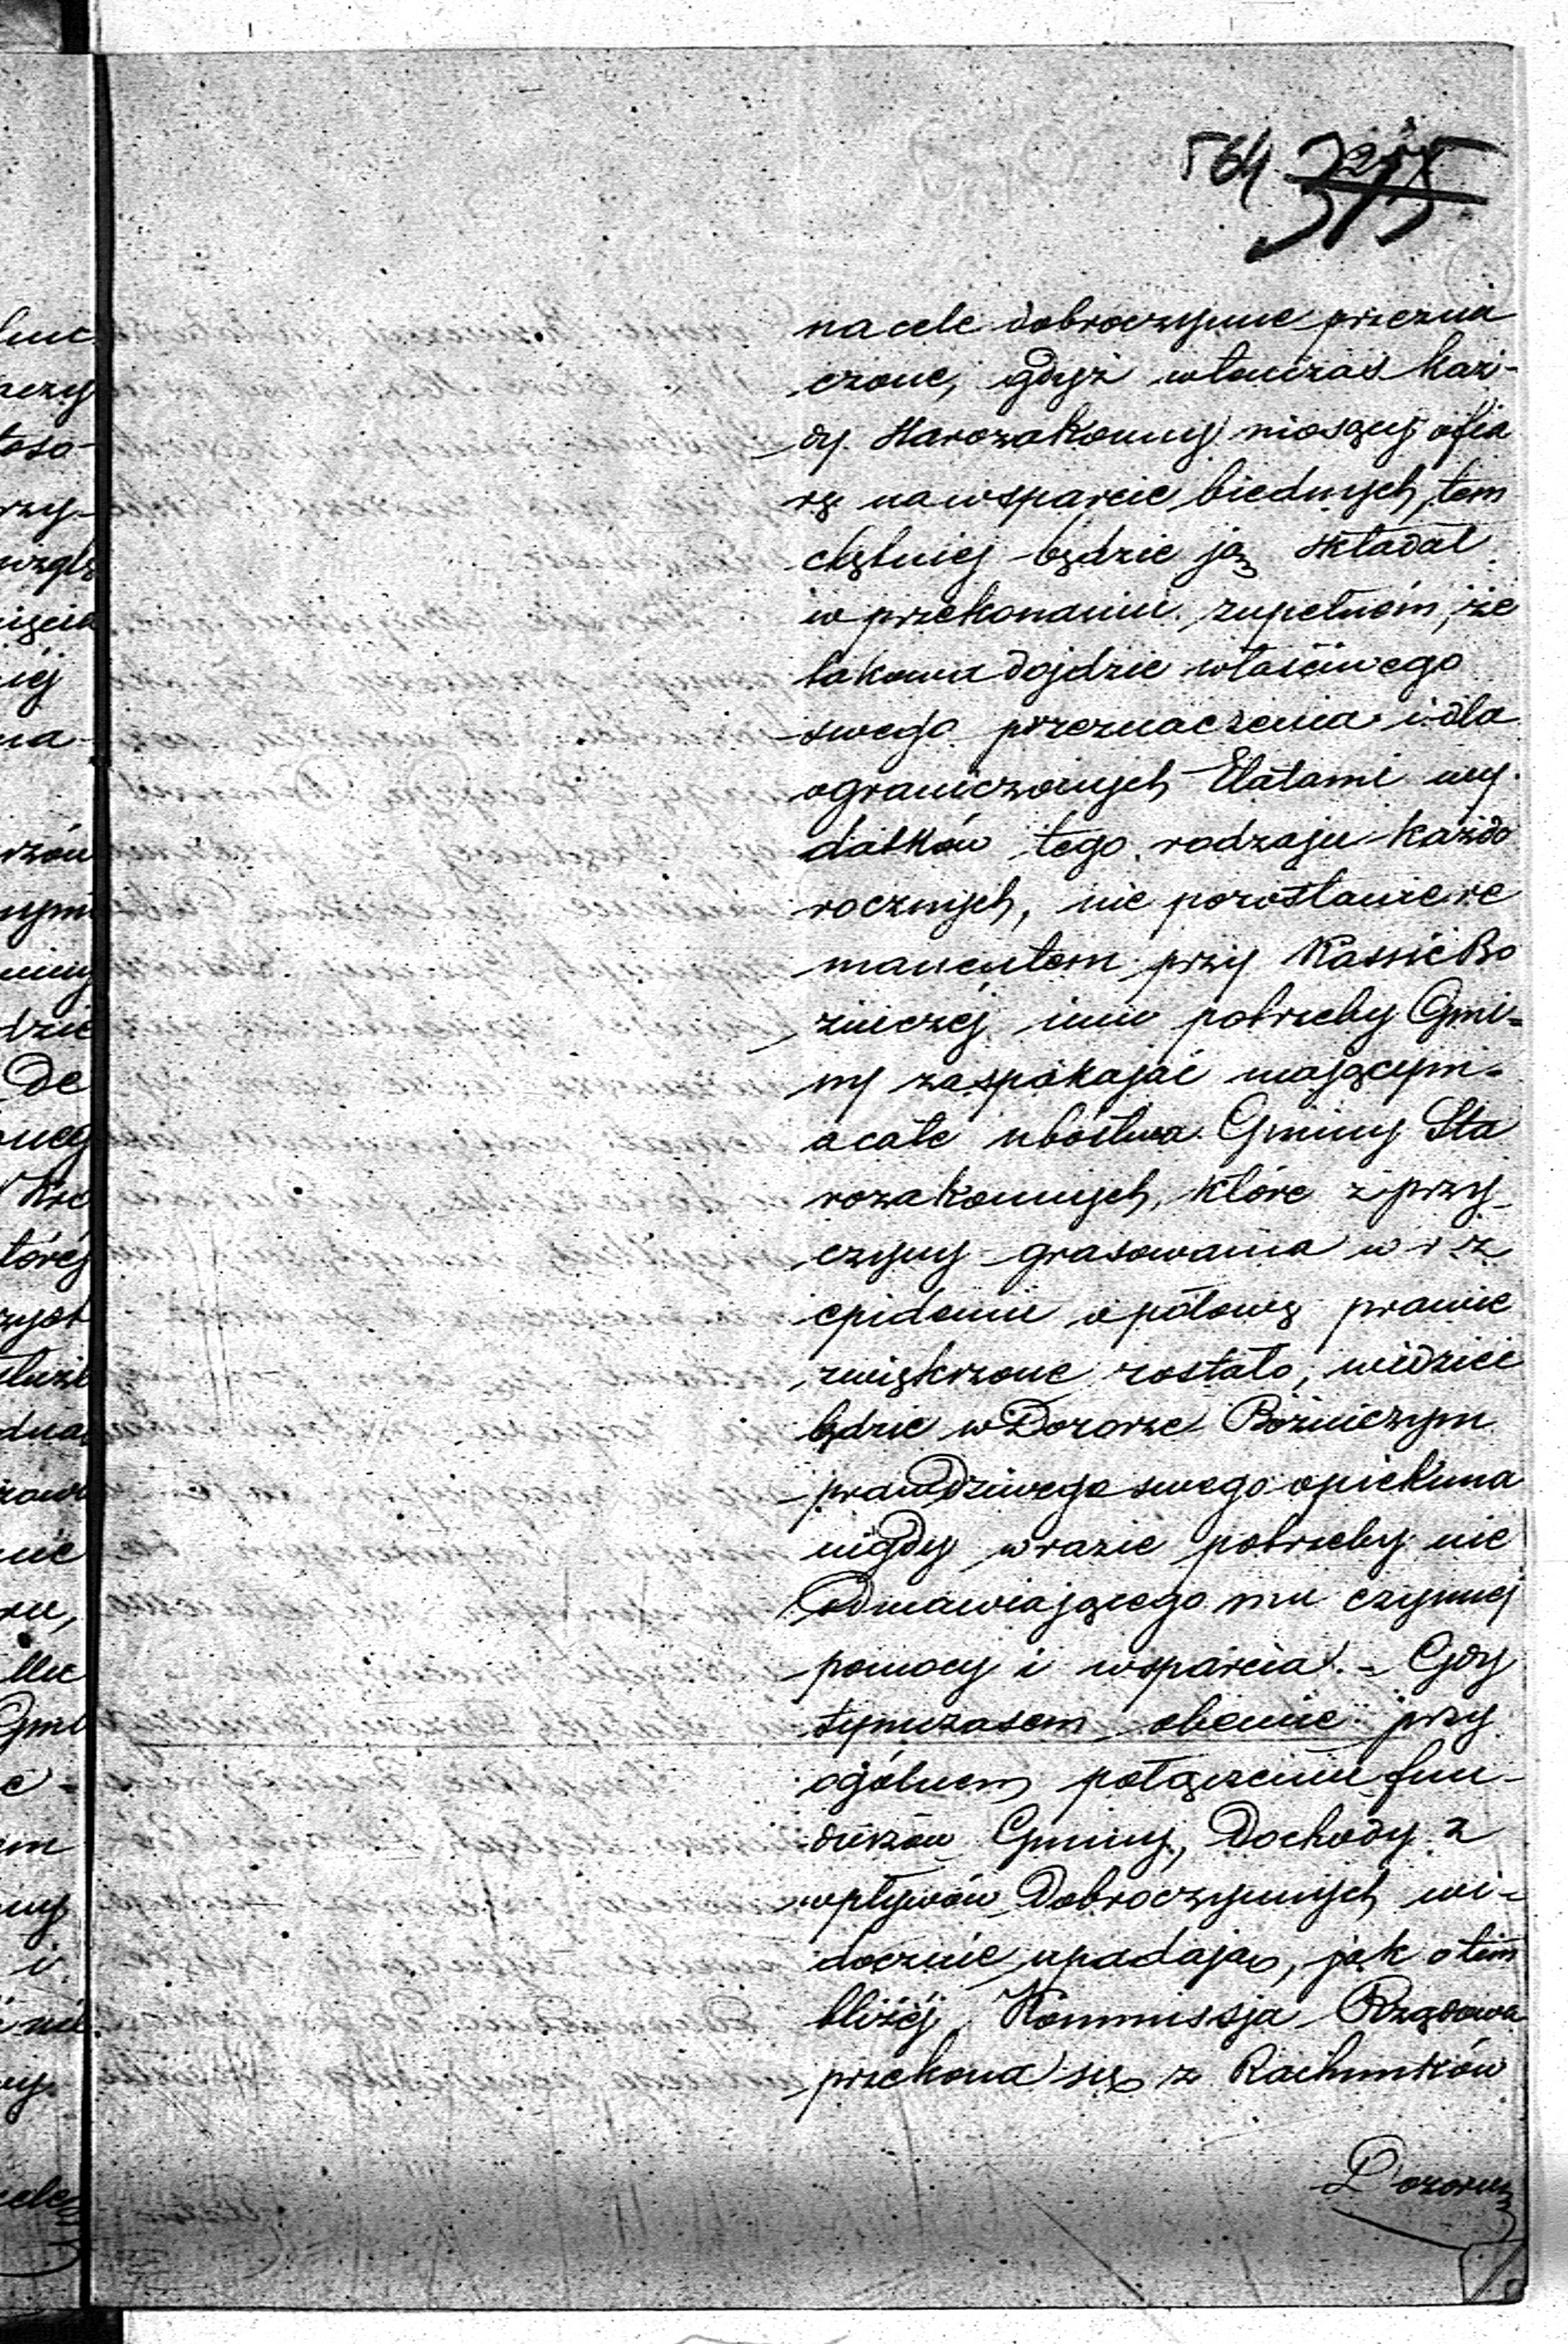 564 375
na cele dobroczynne przezna
czone, gdyż wtenczas każ-
dy Starozakonny niosący ofia
rę na wsparcie biednych, tem
chętniej będzie ją składał
w przekonaniu zupełném, że
takowa dojdzie właściwego
swego przeznaczenia i dla
ograniczonych Etatami wy-
datków tego rodzaju każdo
rocznych, nie pozostanie re
manentem przy Kassie Bo
żniczéj innе potrzeby Gmi-
ny zaspakajać mającym-
a całe ubóstwo Gminy Sta
rozakonnych, które z przy-
czyny grasowania w r z
epidemii o połowę prawie
zwiększone zostało, widzieć
będzie w Dozorze Bóżniczym
prawdziwego swego opiekuna
nigdy w razie potrzeby nie
odmawiającego mu czynnej
pomocy i wsparcia. - Gdy
tymczasem obecnie przy
ogólnem połączeniu fun-
duszów Gminy, Dochody z
wpływów Dobroczynnych wi-
docznie upadają, jak o tém
bliżéj Kommissja Rządowa
przekona się z Rachunków
Dozoru